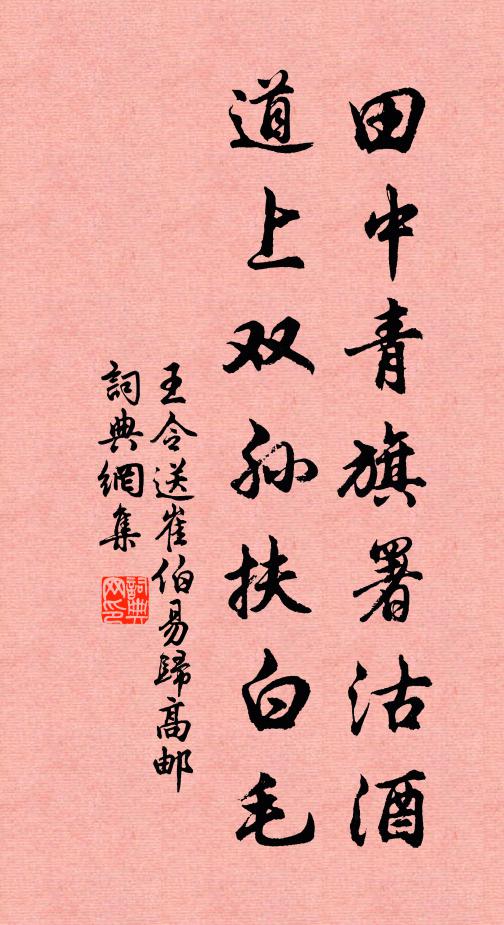 田中青旗署沽酒
道上双孙扶白毛
王令送崔伯易歸高邮
詞典網集
詞典
网印